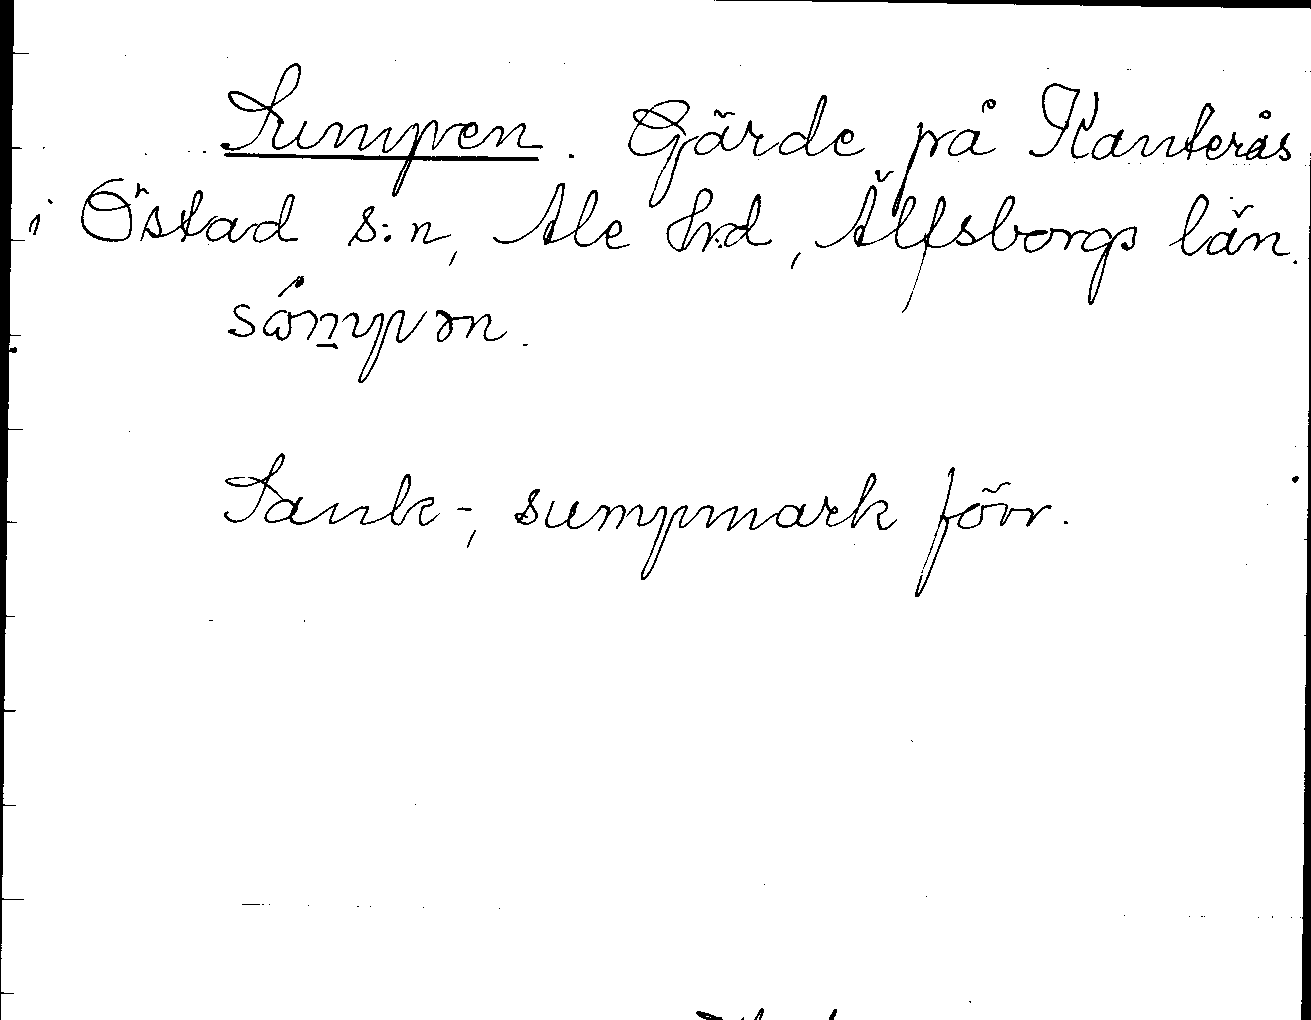 Sumpen. Gärde på Kanterås
i Östad s:n, Ale hrd, Älfsborgs län.
sómpən.
Sank-, sumpmark förr.